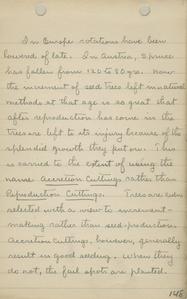 In Europe rotations have been
lowered of late. In Austria, Spruce
has fallen from 120 to 80 yrs. Now
the increment of seed trees left in natural
methods at that age is so great that
after reproduction has come in the
trees are left to its injury because of the
splendid growth they put on. This
is carried to the extent of using the
name Accretion Cuttings rather than
Reproduction Cuttings. Trees are even
selected with a view to increment-
making rather than seed-production.
Accretion Cuttings, however, generally
result in good seeding. When they
do not, the fail spots are planted.
148